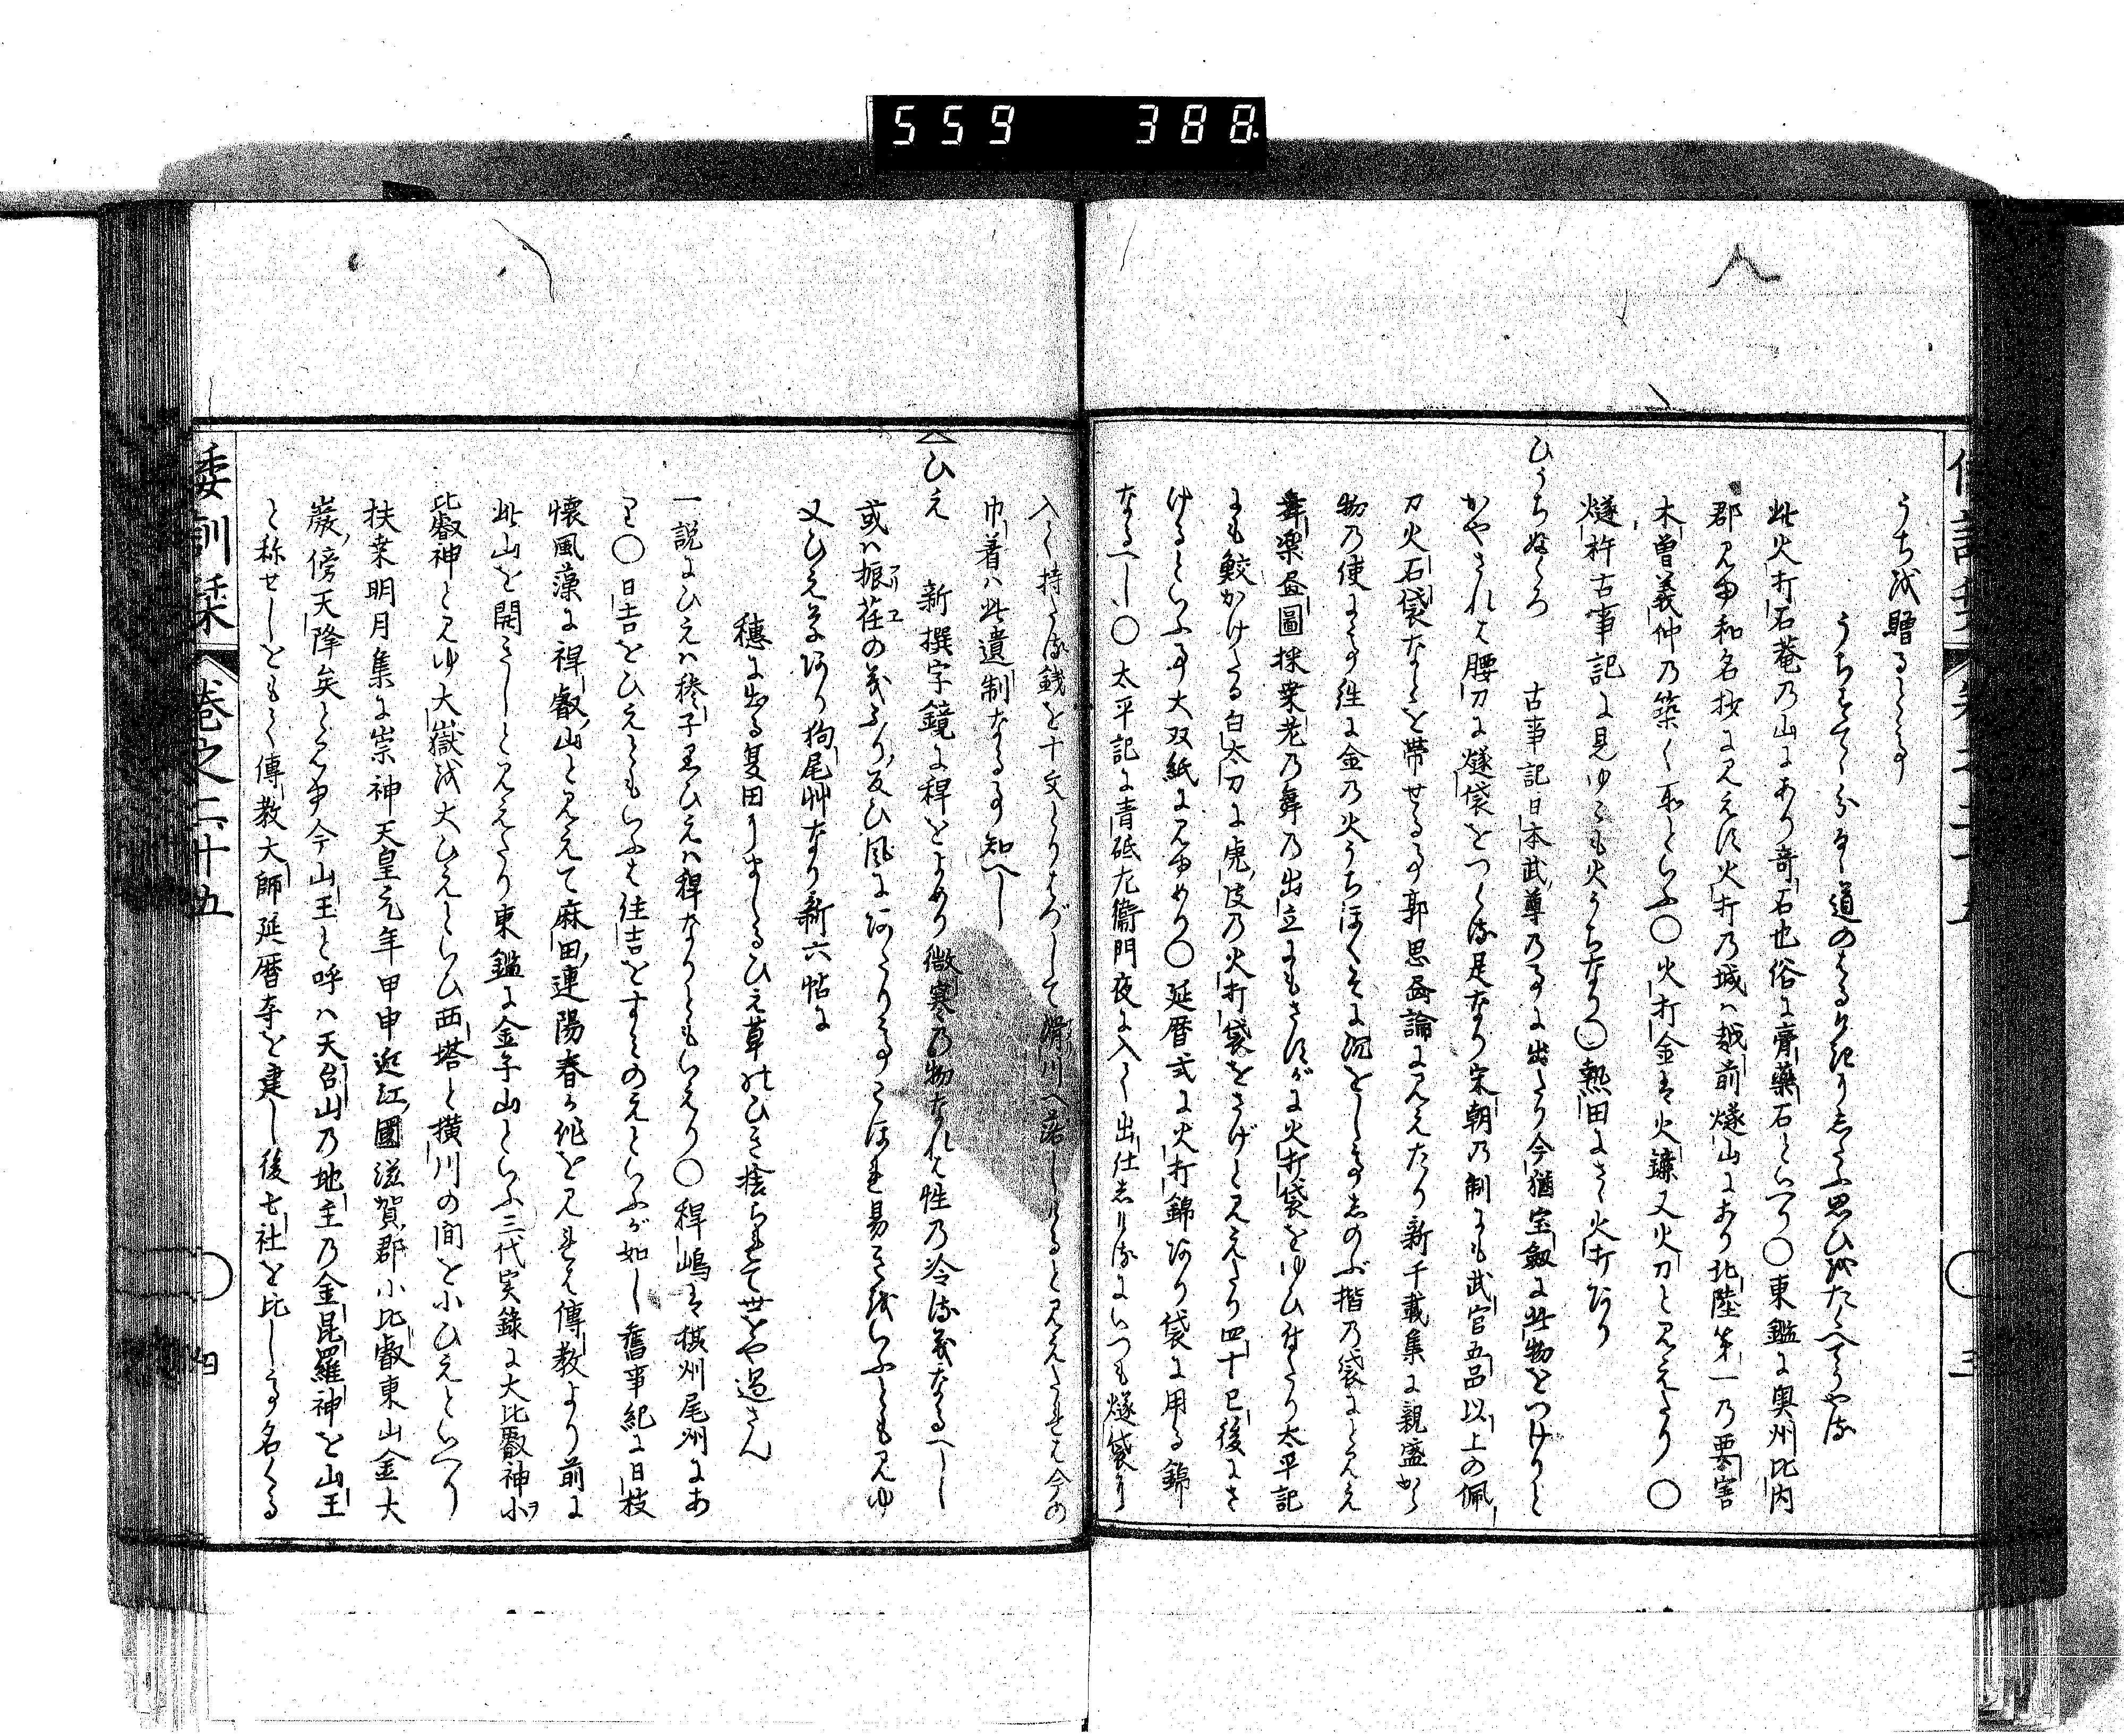 559 388
うちを贈るとき
うちすてゝ行道のはるけきにしたふ思ひをたくへてそやる
此火打石菴の山にあり奇石也俗に膏薬石といへり○東鑑に奥州比内
郡見ゆ和名抄に見えす火打の城ハ越前燧山にあり北陸第一の要害
木曽義仲の築く所といふ○火打金は火鎌又火刀と見えたり○
燧杵古事記に見ゆこも火うちなり○熱田にさく火打あり
ひうちぶくろ 古事記日本武尊の事に出たり今猶宝劔に此物をつけり
かやされは腰刀に燧袋をつくる是なり宋朝の制にも武官五品以上の佩
刀火石袋なとを帯せる事郭思画論に見えたり新千載集に親盛から
物の使に
舞楽畫圖採桑老の舞の出立にもさけがに火打袋をゆひ付たり太平記
にも鮫かけたる白太刀に虎皮の火打袋をさげと見えたり四十已後にさ
けるといふ事大双紙に見ゆめり○延暦式に火打錦あり袋に用る錦
なるへし○太平記に青砥左衛門夜に入て出仕しけるにいつも燧袋に
入て持たる銭を十文とりはづして滑川へ落しけると見えたれは今の
巾着ハ此遺制なる事知へし
ひえ 新撰字鏡に稗をよめり微寒の物なれは性の冷る義なるへし
或ハ振荏の義ふり反ひ風にあたりてこほれ易きをいふとも見ゆ
又ひえ草あり狗尾艸なり新六帖に
穂に出る夏田にましるひえ草のひき捨られて世をや過さん
一説にひえハ穇子黒ひえハ稗なりともいえり○稗嶋は摂州尾州にあ
り○日吉をひえともいふは住吉をすみのえといふが如し舊事紀に日枝
懐風藻に稗叡山と見えて麻田連陽春か作を見れは傳教より前に
此山を開きしと見えたり東鑑に金子山といふ三代実録に大比叡神小
比叡神と見ゆ大嶽を大ひえといひ西塔と横川の間を小ひえといへり
扶桑明月集に崇神天皇元年甲申近江國滋賀郡小比叡東山金大
巌傍天降矣と見ゆ今山王と呼ハ天台山の地主の金昆羅神を山王
と称せしともて傳教大師延暦寺を建し後七社を比しより名くる
倭訓栞 卷之二十五 三
倭訓栞 卷之二十五 四